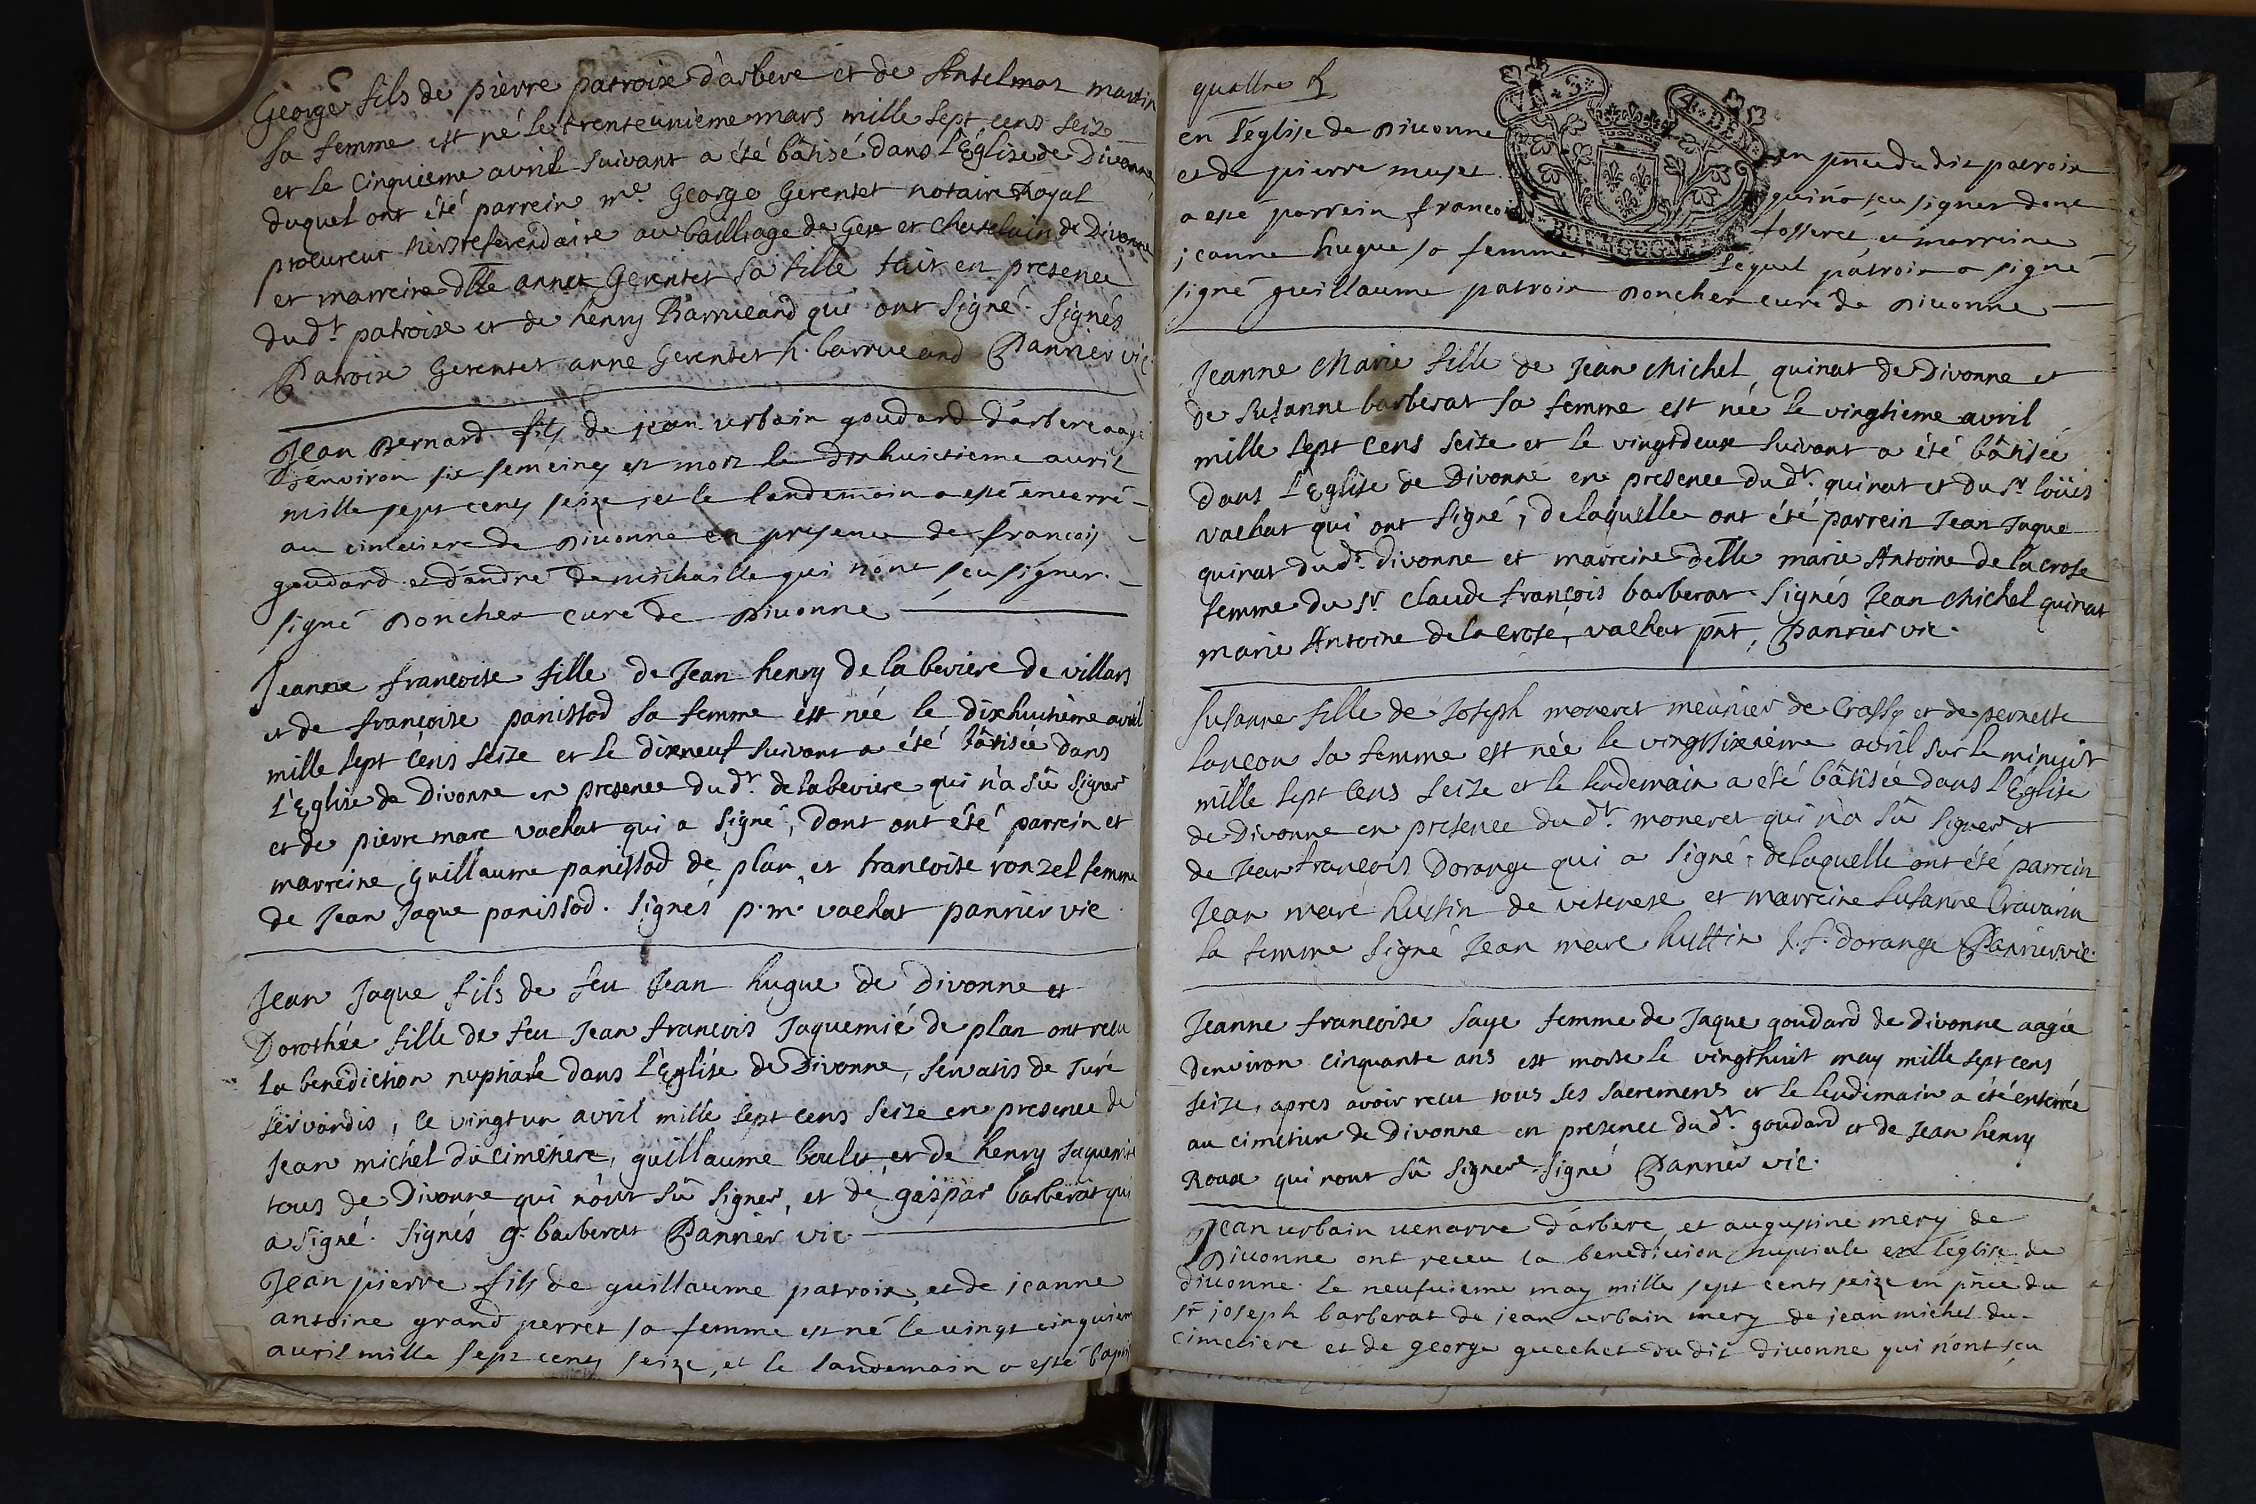 George fils de pierre patroix d'arbere et de Antelmoz martin
sa femme est né le trenteunieme mars mille sept cens seize
et le cinquieme avril suivant a été bâtisé dans l'Eglise de Divonne,
duquel ont été parrein me. George Gerentet notaire Royal
procureur tiers referendaire au bailliage de Gex et Chatelain de Divonne
et marreine dlle anne Gerentet sa fille fait en presence
dudt patroix et de henry Barrueand qui ont signé. signés
Patroix Gerentet anne Gerentet h. barrueand Pannier vic.
Jean Bernard fils de jean urbain goudard d'arbere aagé
d'environ six semeines est mort le dixhuictieme auril
mille sept cents seize, et le landemain a esté enterré
au cimetiere de Diuonne en presence de françois
goudard et d'andré de michaille qui n'ont sçeu signer.
signé Doncher curé de Diuonne
Jeanne francoise fille de Jean henry de la beviere de villars
et de françoise panissod sa femme est née le dixhuitième avril
mille sept cens seize et le dixneuf suivant a été bâtisée dans
l'Eglise de Divonne en presence dudt. de la beviere qui n'a sû signer
et de pierre marc vachat qui a signé, dont ont été parrein et
marreine guillaume panissod de plan, et francoise ronzel femme
de Jean Jaque panissod. signés p. m. vachat pannier vic
Jean Jaque fils de feu Jean hugue de Divonne et
Dorothée fille de feu Jean francois Jaquemié de plan ont recu
la benediction nuptiale dans l'Eglise de Divonne, servatis de Juré
servandis, le vingtun avril mille sept cens seize en presence de
Jean michél du cimetiere, guillaume boulet, et de henry Jaquemié
tous de Divonne qui n'ont sû signer, et de gaspar barberat qui
a signé. signés g. barberat Pannier vic.
Jean pierre fils de guillaume patroix, et de jeanne
antoine grand perret sa femme est né le uingt cinquieme
auril mille sept cents seize, et le landemain a esté bapti
quattre
en l'église de Diuonne en pnce du dit patroix
et de pierre muset qui n'a sçeu signer dont
a esté parrein francois fosseret et marreine
jeanne hugue sa femme lequel patroix a signé
signé guillaume patroix Doncher curé de Diuonne
VN·S· 4·DEN
BOURGOGNE
Jeanne Marie fille de Jean Michel quinat de Divonne et
de Susanne barberat sa femme est née le vingtieme avril
mille sept cens seize et le vingtdeux suivant a été bâtisée
dans l'Eglise de Divonne en presence dudt. quinat et du sr loüis
vachat qui ont signé, de laquelle ont été parrein Jean Jaque
quinat dudt. Divonne et marreine delle marie Antoine de la crose
femme du sr. claude françois barberat. signés Jean Michel quinat
marie Antoine de la crose, vachat pnt, Pannier vic.
Susanne fille de Joseph moneret meunier de Crassy et de pernette
lancon sa femme est née le vingtsixieme avril sur le minuit
mille sept cens seize et le lendemain a été bâtisée dans l'Eglise
de Divonne en presence dudt. moneret qui n'a sû signer et
de Jean françois Dorange qui a signé, de laquelle ont été parrein
Jean marc huttin de vesenex et marreine Susanne Cravarin
sa femme signé Jean marc huttin J. f. dorange Pannier vic.
Jeanne francoise saye femme de Jaque goudard de Divonne aagée
d'environ cinquante ans est morte le vingthuit may mille sept cens
seize, apres avoir recu tous ses sacremens et le lendemain a été enterrée
au cimetiere de Divonne en presence dudt. goudard et de Jean henry
Roux qui n'ont sû signer. signé Pannier vic.
Jean urbain uenarre d'arbere, et augustine mery de
Diuonne ont receu la benediction nuptiale en l'église de
diuonne. le neufuieme may mille sept cents seize en pnce du
sr joseph barberat de jean urbain mery de jean michel du
cimetiere et de george guechet du dit diuonne qui n'ont sçu